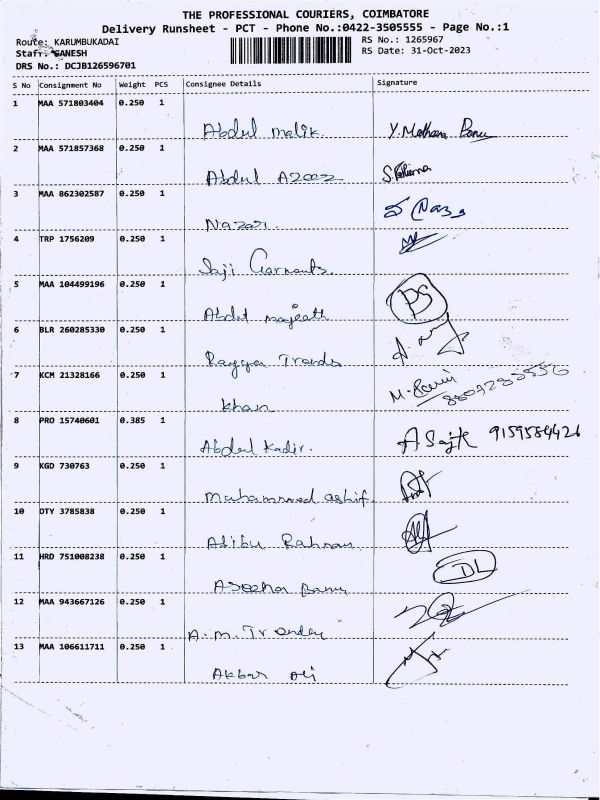 THE PROFESSIONAL COURIERS, COIMBATORE
Delivery Runsheet - PCT - Phone No.:0422-3505555 - Page No.:1
Route: KARUMBUKADAI
RS No.: 1265967
Staff: GANESH
RS Date: 31-Oct-2023
DRS No.: DCJB126596701
S No Consignment No Weight PCS Consignee Details Signature
1 MAA 571803404 0.250 1
Abdul malik. Y. Banu
2 MAA 571857368 0.250 1
Abdul Azeez
3 MAA 862302587 0.250 1
Nazar.
4 TRP 1756209 0.250 1
Saji Garments
5 MAA 104499196 0.250 1
Abdul majeath PS
6 BLR 260285330 0.250 1
Trends
7 KCM 21328166 0.250 1
khan M.
8 PRO 15740601 0.385 1
Abdul Kadir. A 9159584426
9 KGD 730763 0.250 1
Muhammed ashif
10 DTY 3785838 0.250 1
Rahman
11 HRD 751008238 0.250 1
Banu DL
12 MAA 943667126 0.250 1
A.m. Trendey
13 MAA 106611711 0.250 1
Akbar Ali